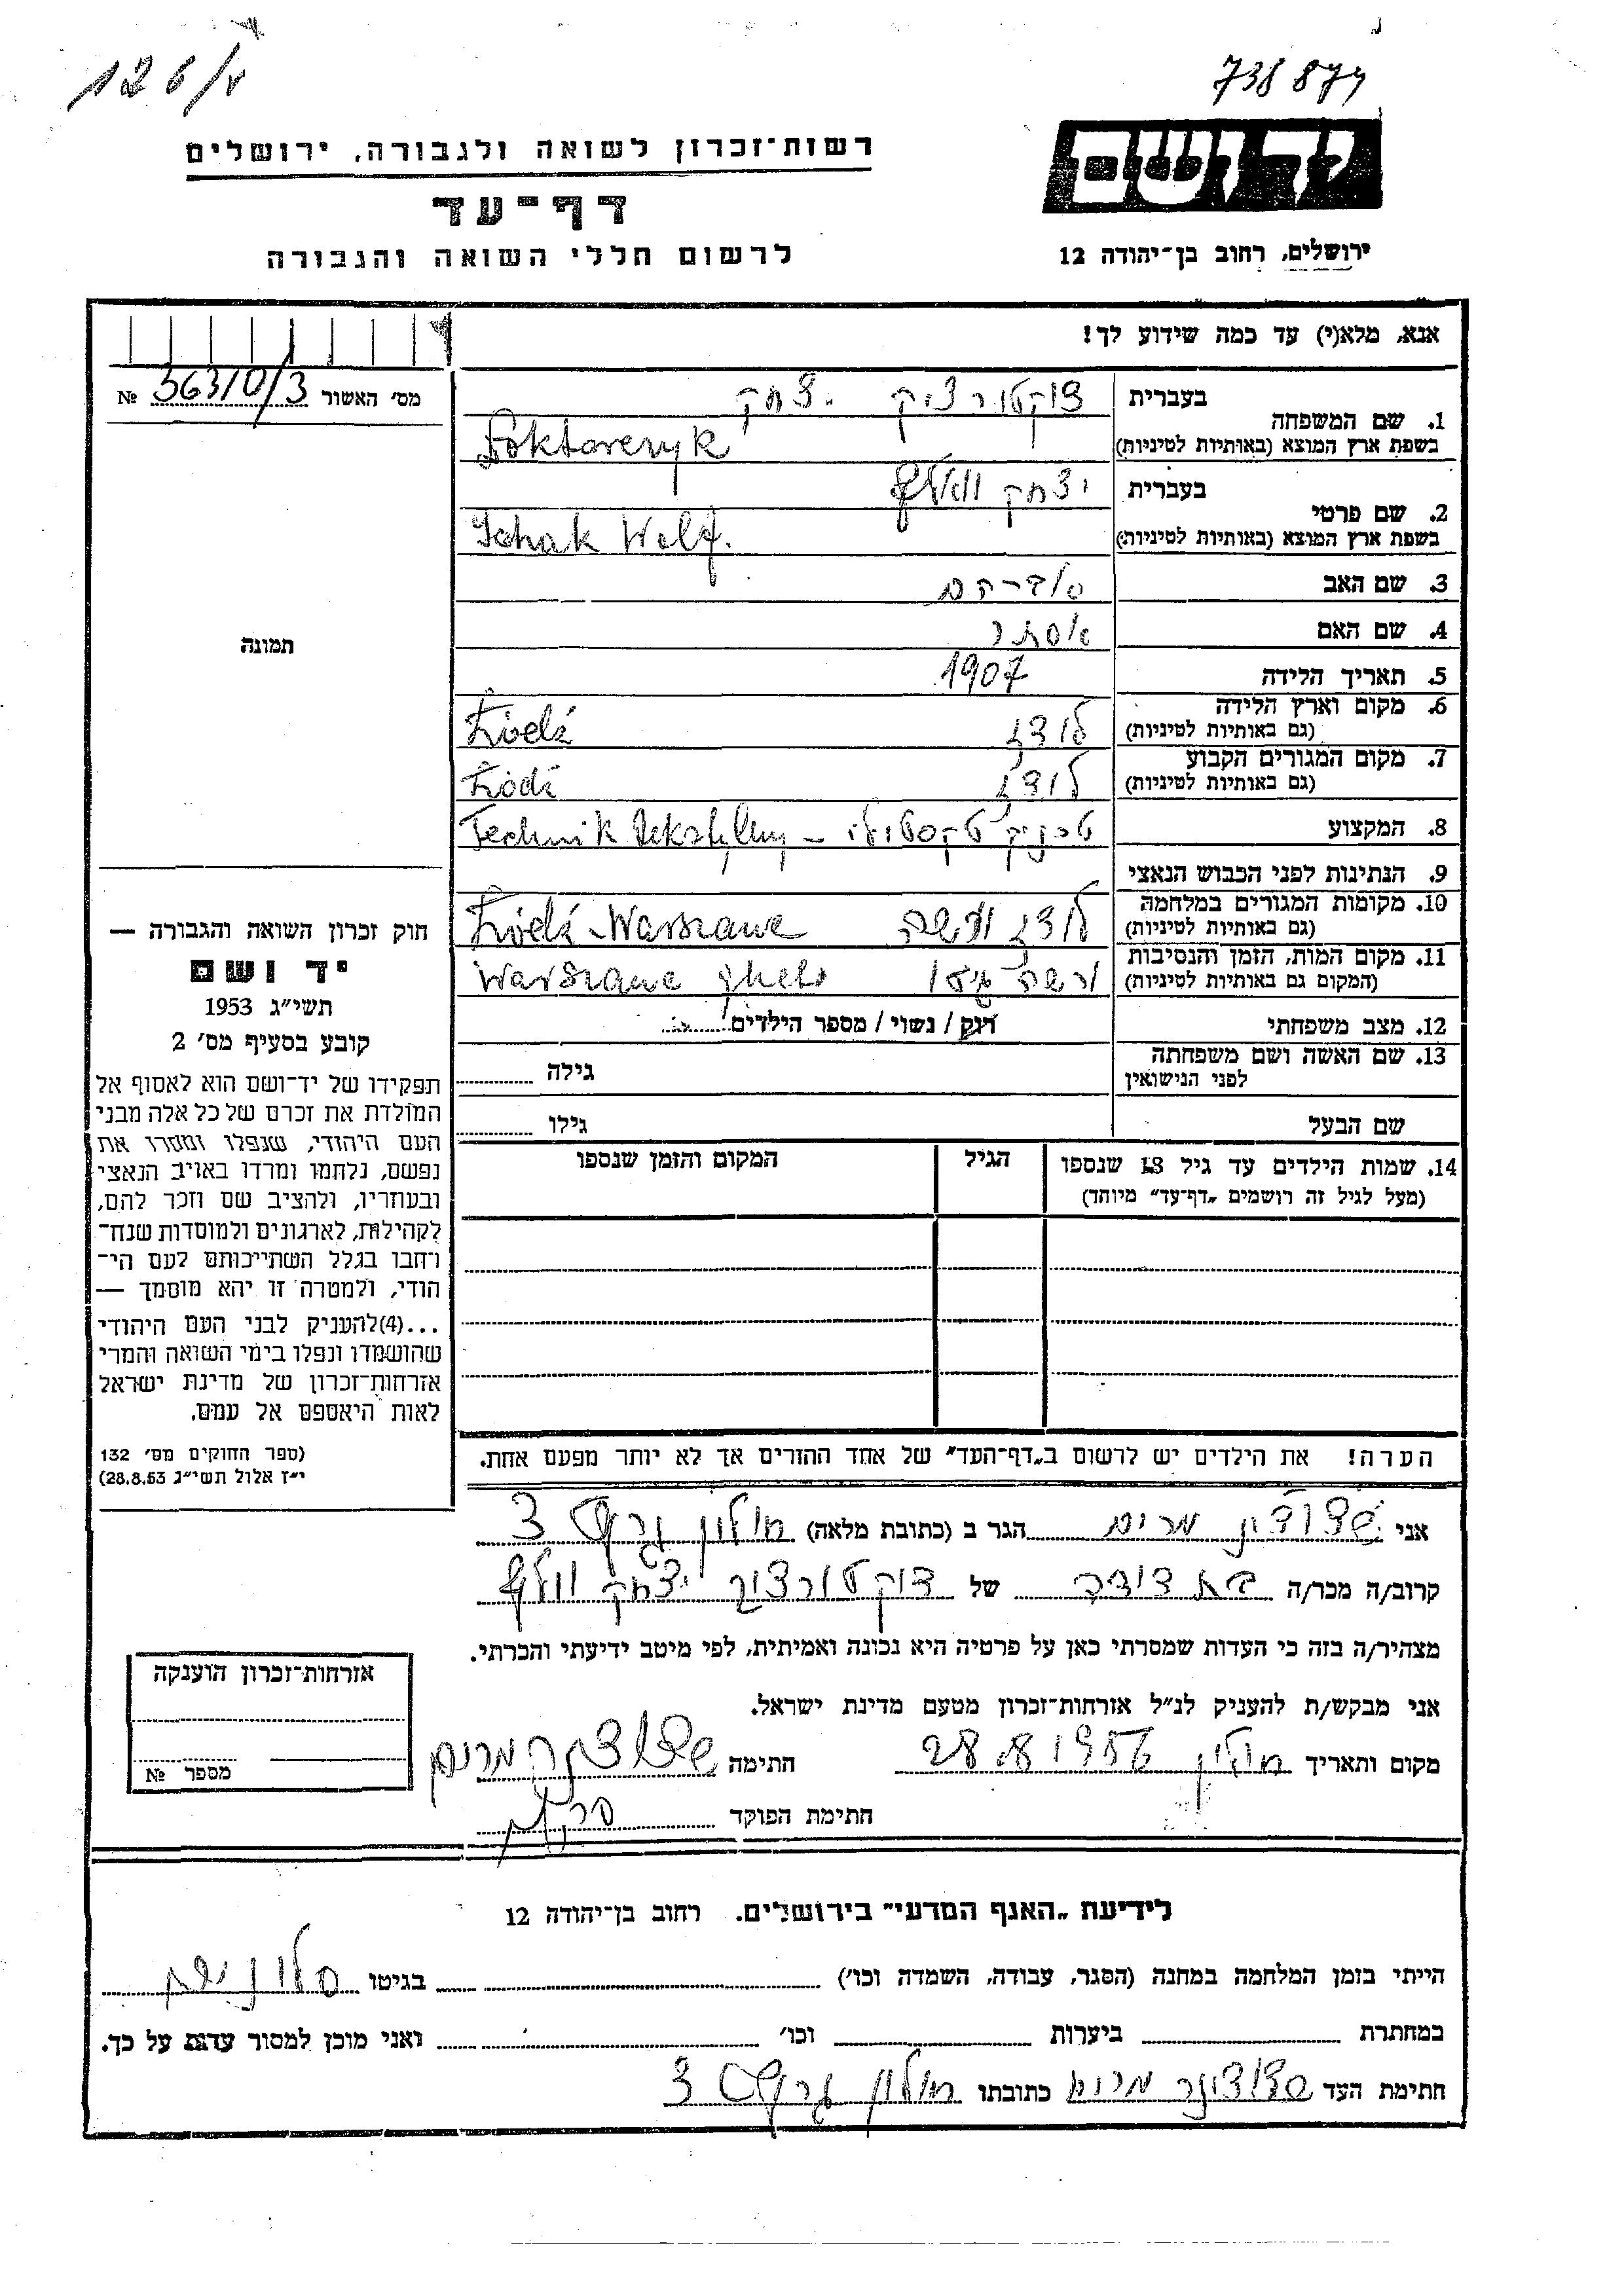 126/
738879
יד ושם
ירושלים, רחוב בן־יהודה 12
רשות־זכרון לשואה ולגבורה, ירושלים
דף־עד
לרשום חללי השואה והגבורה
אנא, מלא(י) עד כמה שידוע לך!
מס׳ האשור 363/0/3 №
תמונה
חוק זכרון השואה והגבורה —
יד ושם
תשי״ג 1953
קובע בסעיף מס׳ 2
תפקידו של יד־ושם הוא לאסוף אל
המולדת את זכרם של כל אלה מבני
העם היהודי, שנפלו ומסרו את
נפשם, נלחמו ומרדו באויב הנאצי
ובעוזריו, ולהציב שם וזכר להם,
לקהילות, לארגונים ולמוסדות שנח־
רחבו בגלל השתייכותם לעם הי־
הודי, ולמטרה זו יהא מוסמך —
...(4)להעניק לבני העם היהודי
שהושמדו ונפלו בימי השואה והמרי
אזרחות־זכרון של מדינת ישראל
לאות היאספם אל עמם.
(ספר החוקים מס׳ 132
י״ז אלול תשי״ג 28.8.53)
1. שם המשפחה בעברית דוקטורציק יצחק
בשפת ארץ המוצא (באותיות לטיניות) Doktorczyk
2. שם פרטי בעברית יצחק וולף
בשפת ארץ המוצא (באותיות לטיניות) Ichak Wolf.
3. שם האב אברהם
4. שם האם אסתר
5. תאריך הלידה 1907
6. מקום וארץ הלידה (גם באותיות לטיניות) לודז Łódź
7. מקום המגורים הקבוע (גם באותיות לטיניות) לודז Łódź
8. המקצוע טכניק טקסטילי – Technik tekstylny
9. הנתינות לפני הכבוש הנאצי
10. מקומות המגורים במלחמה (גם באותיות לטיניות) לודז ורשה Łódź-Warszawa
11. מקום המות, הזמן והנסיבות (המקום גם באותיות לטיניות) ורשה גיטו Warszawa ghetto
12. מצב משפחתי רוק / נשוי / מספר הילדים
13. שם האשה ושם משפחתה לפני הנישואין גילה
שם הבעל גילו
14. שמות הילדים עד גיל 18 שנספו הגיל המקום והזמן שנספו
(מעל לגיל זה רושמים „דף־עד״ מיוחד)
הערה! את הילדים יש לרשום ב„דף־העד״ של אחד ההורים אך לא יותר מפעם אחת.
אני מרים הגר ב (כתובת מלאה) חולון 3
קרוב/ה מכר/ה בת דודה של דוקטורציק יצחק וולף
מצהיר/ה בזה כי העדות שמסרתי כאן על פרטיה היא נכונה ואמיתית, לפי מיטב ידיעתי והכרתי.
אני מבקש/ת להעניק לנ״ל אזרחות־זכרון מטעם מדינת ישראל.
מקום ותאריך חולון 28.8.1956 חתימה מרים
חתימת הפוקד
אזרחות־זכרון הוענקה
מספר №
לידיעת „האגף המדעי״ בירושלים. רחוב בן־יהודה 12
הייתי בזמן המלחמה במחנה (הסגר, עבודה, השמדה וכו׳) בגיטו
במחתרת ביערות וכו׳ ואני מוכן למסור עדות על כך.
חתימת העד מרים כתובתו חולון 3